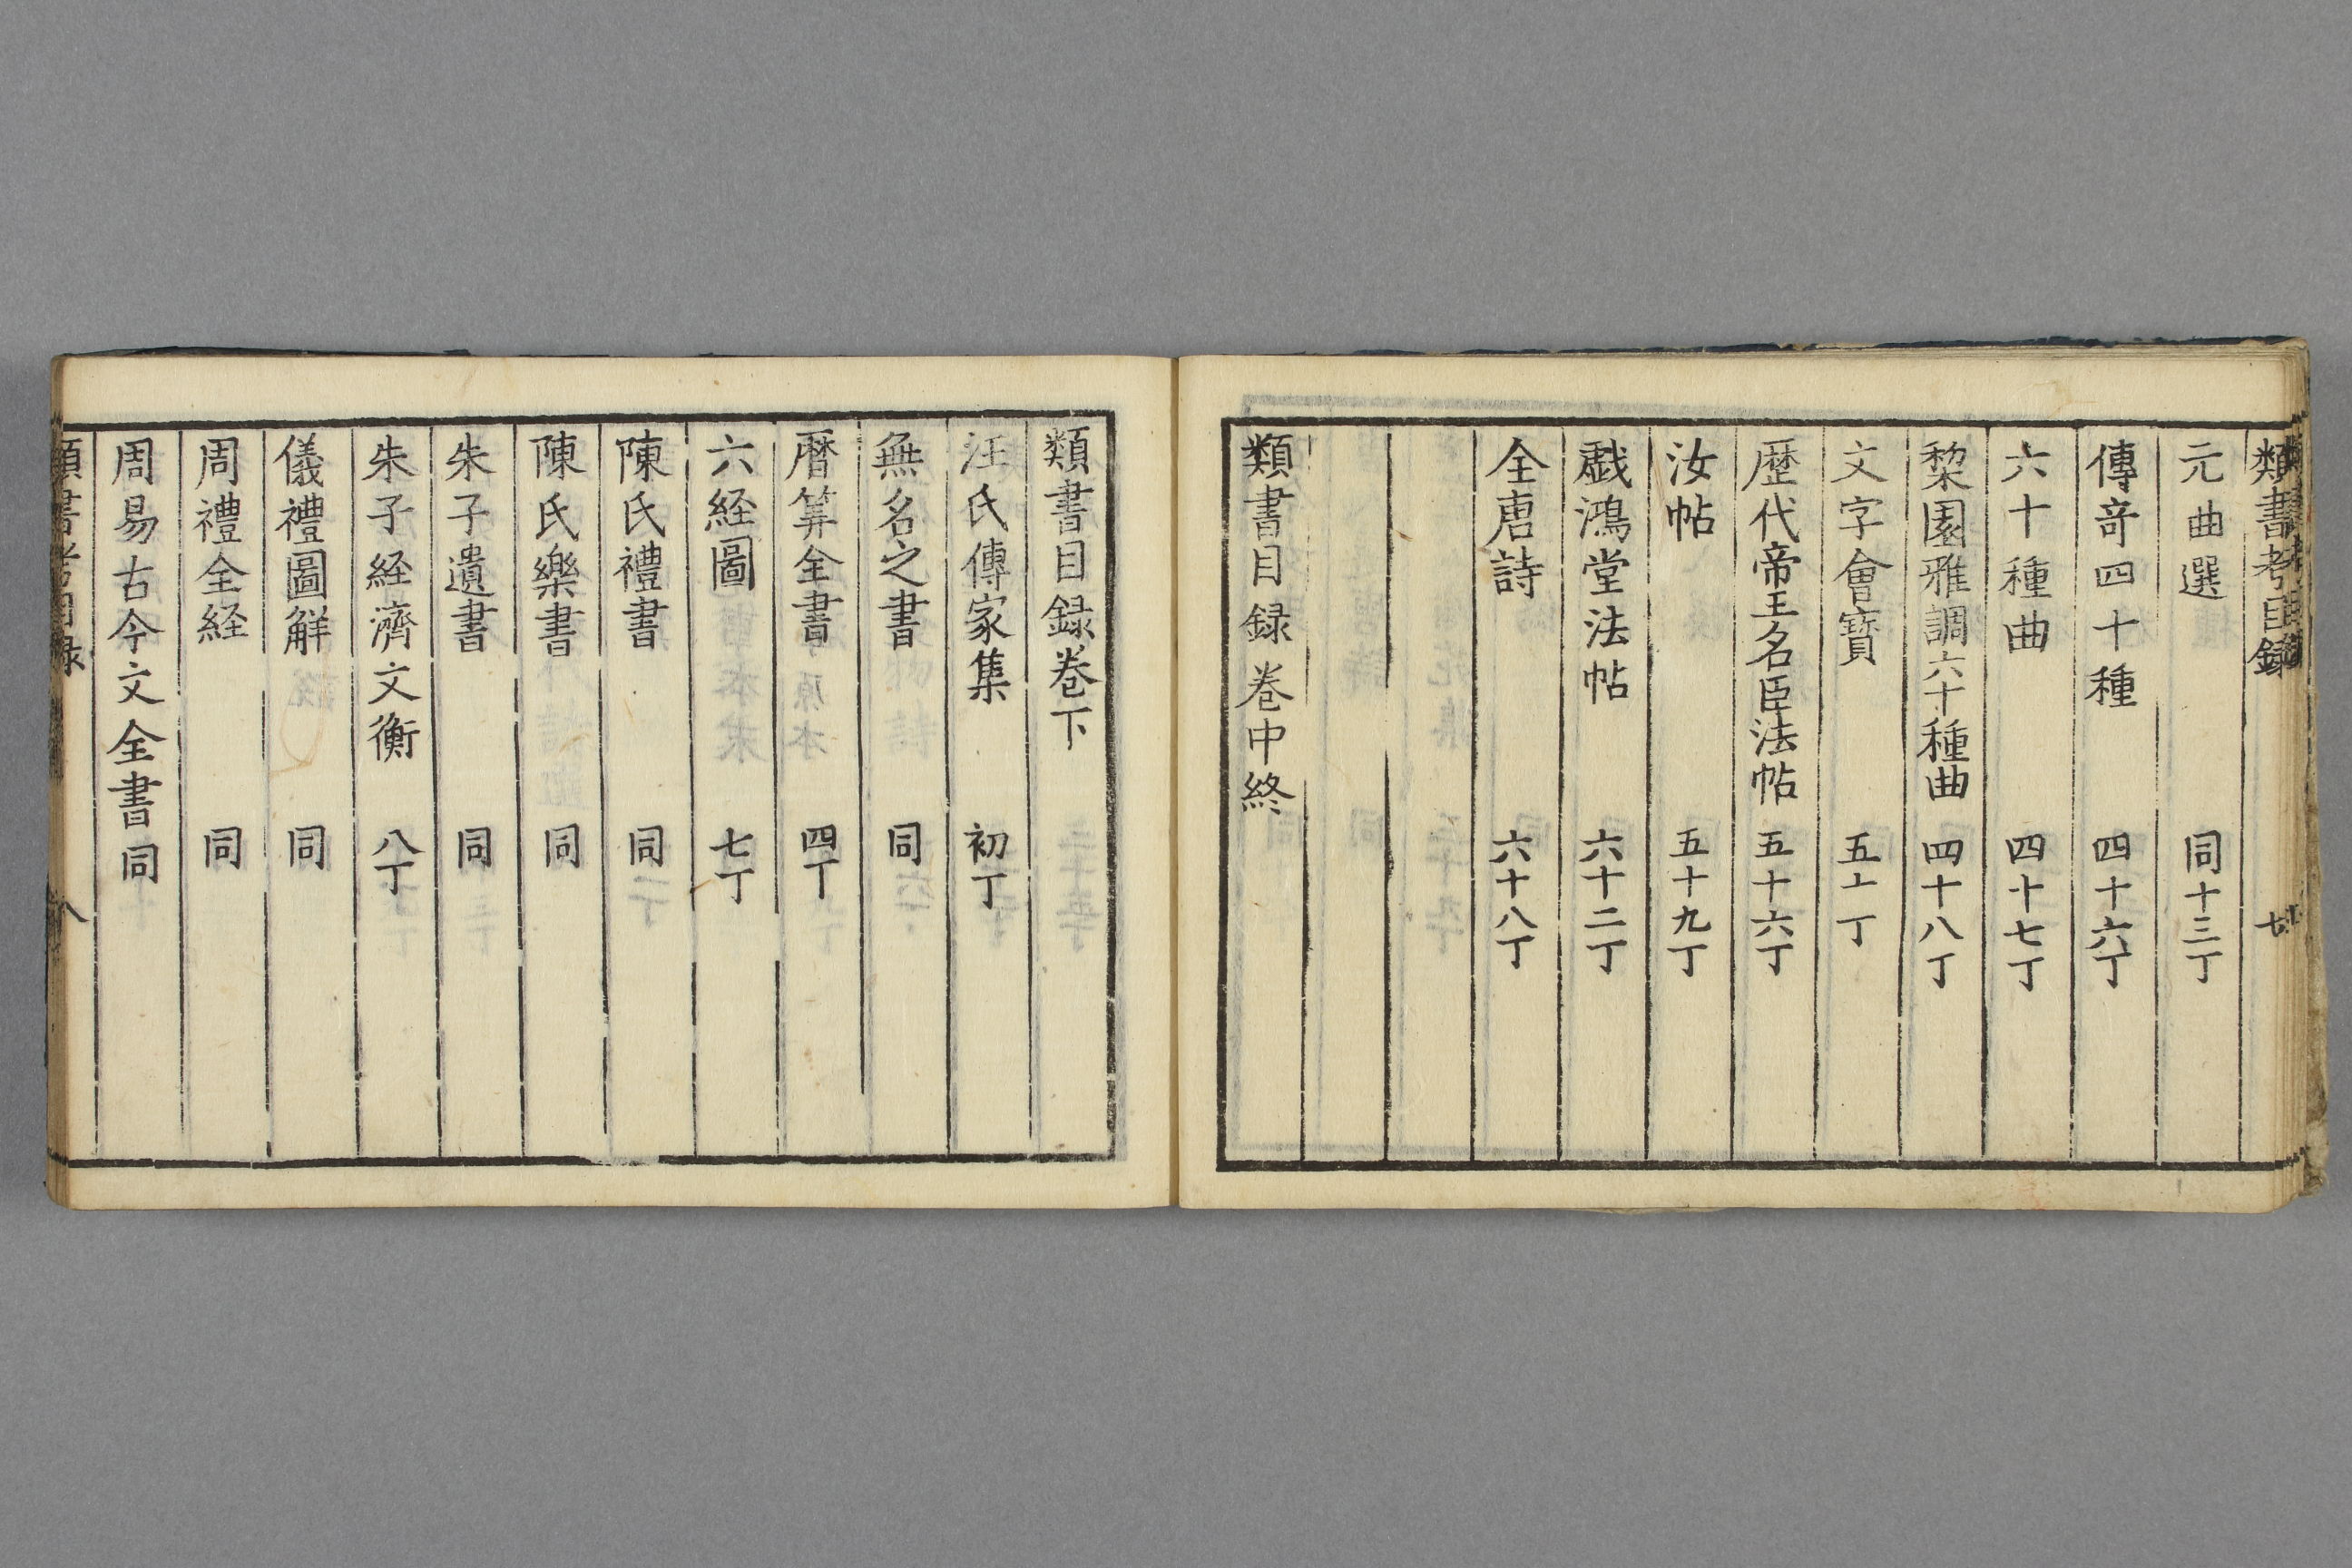 類書考目録
七
元曲選 同十三丁
傳竒四十種 四十六丁
六十種曲 四十七丁
棃園雅調六十種曲 四十八丁
文字會寳 五十一丁
歴代帝王名臣法帖 五十六丁
汝帖 五十九丁
戯鴻堂法帖 六十二丁
全唐詩 六十八丁
類書目録卷中終
類書目録卷下
汪氏傳家集 初丁
無名之書 同
暦算全書 四丁
六経圖 七丁
陳氏禮書 同
陳氏樂書 同
朱子遺書 同
朱子経濟文衡 八丁
儀禮圖解 同
周禮全経 同
周易古今文全書 同
類書考目録
八